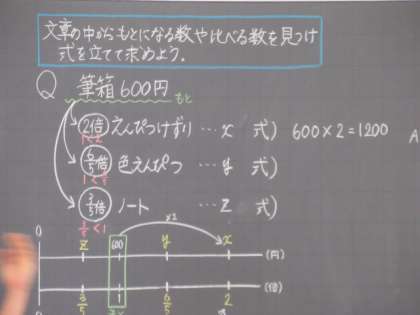 文章の中からもとになる数や比べる数を見つけ
式を立てて求めよう。
Q 筆箱600円
もと
2倍 えんぴつけずり …x 式) 600×2=1200 A
1<2
6/5倍 色えんぴつ …y 式)
1<6/5
3/5倍 ノート …z 式)
3/5<1
×2
0 z 600 y x (円)
0 3/5 1 6/5 2 (倍)